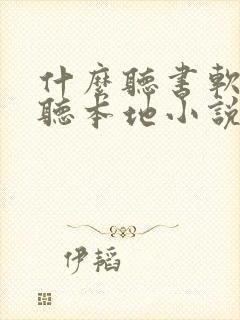 什麼聽書軟
聽本地小說
伊韜